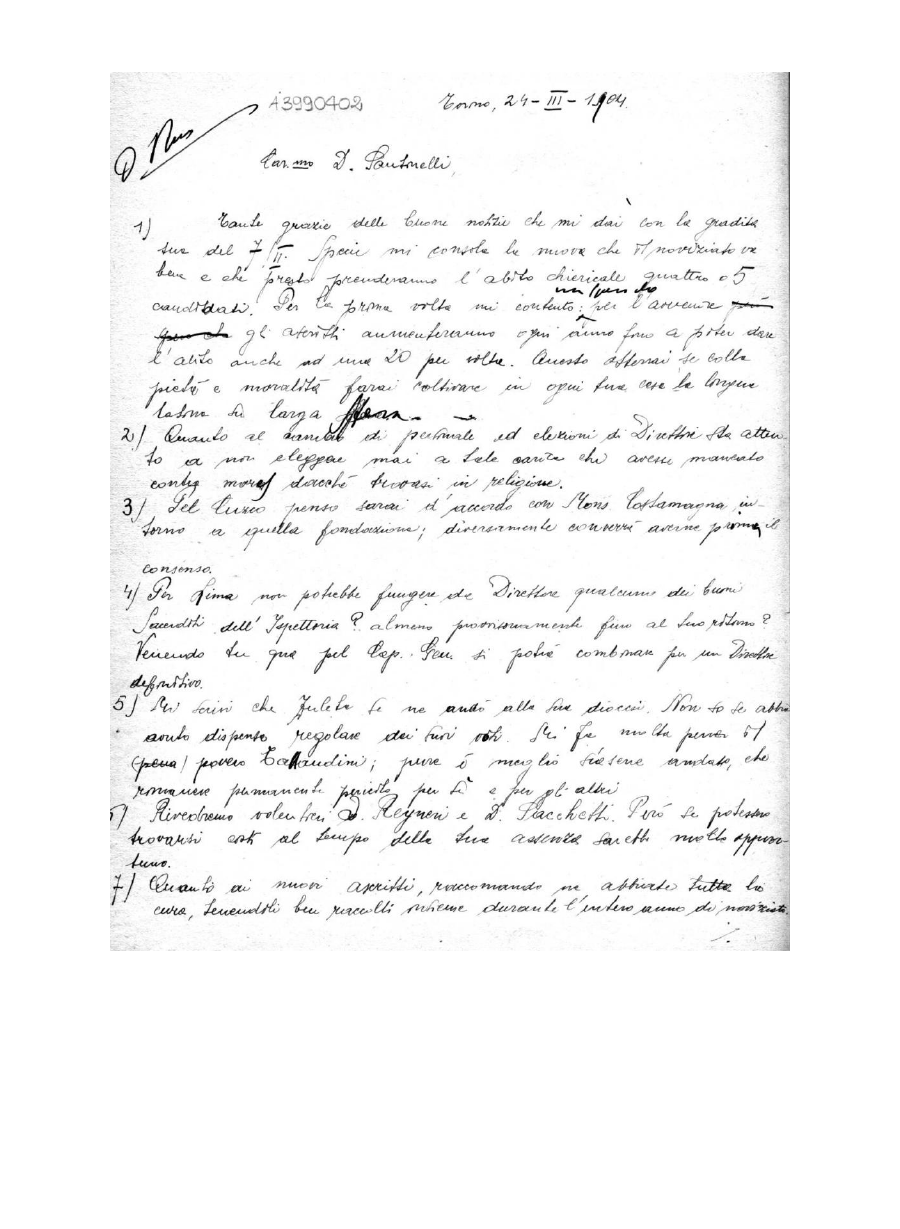 A3990402
Torino, 24-III-1904.
D Rua
Car.mo D. Santinelli,
1) Tante grazie delle buone notizie che mi dai con la gradita
tua del 7/II. Specie mi consola la nuova che il noviziato va
bene e che presto prenderanno l'abito chiericale quattro o 5
un pardo
candidati. Per la prima volta mi contento; per l'avvenire
gli ascritti aumenteranno ogni anno fino a poter dare
l'abito anche ad una 20 per volta. Questo otterrai se colla
pietà e moralità farai coltivare in ogni tua casa la lingua
latina su larga
2) Quanto al di personale ed elezioni di Direttori sta atten-
to a non eleggere mai a tale carica chi avesse mancato
contra mores dacchè trovasi in religione.
3) Pel Cuzco penso sarai d'accordo con Mons. Costamagna in-
torno a quella fondazione; diversamente converrà averne prima il
consenso.
4) Per Lima non potrebbe fungere da Direttore qualcuno dei buoni
Sacerdoti dell'Ispettoria? almeno provvisoriamente fino al tuo ritorno?
Venendo tu qua pel Cap. Gen. si potrà combinare per un Direttore
definitivo.
5) Mi scrivi che Zuleta se ne andò alla sua diocesi. Non so se abbia
avuto dispensa regolare dai suoi voti. Mi fa molta pena il
(pena) povero; pure è meglio siasene andato, che
rimanere permanente pericolo per sè e per gli altri
6) Rivedremo volentieri D. Reyneri e D. Sacchetti. Però se potessero
trovarsi costì al tempo della tua assenza sarebbe molto oppor-
tuno.
7) Quanto ai nuovi ascritti, raccomando ne abbiate tutta la
cura, tenendoli ben raccolti insieme durante l'intero anno di noviziato.
./.